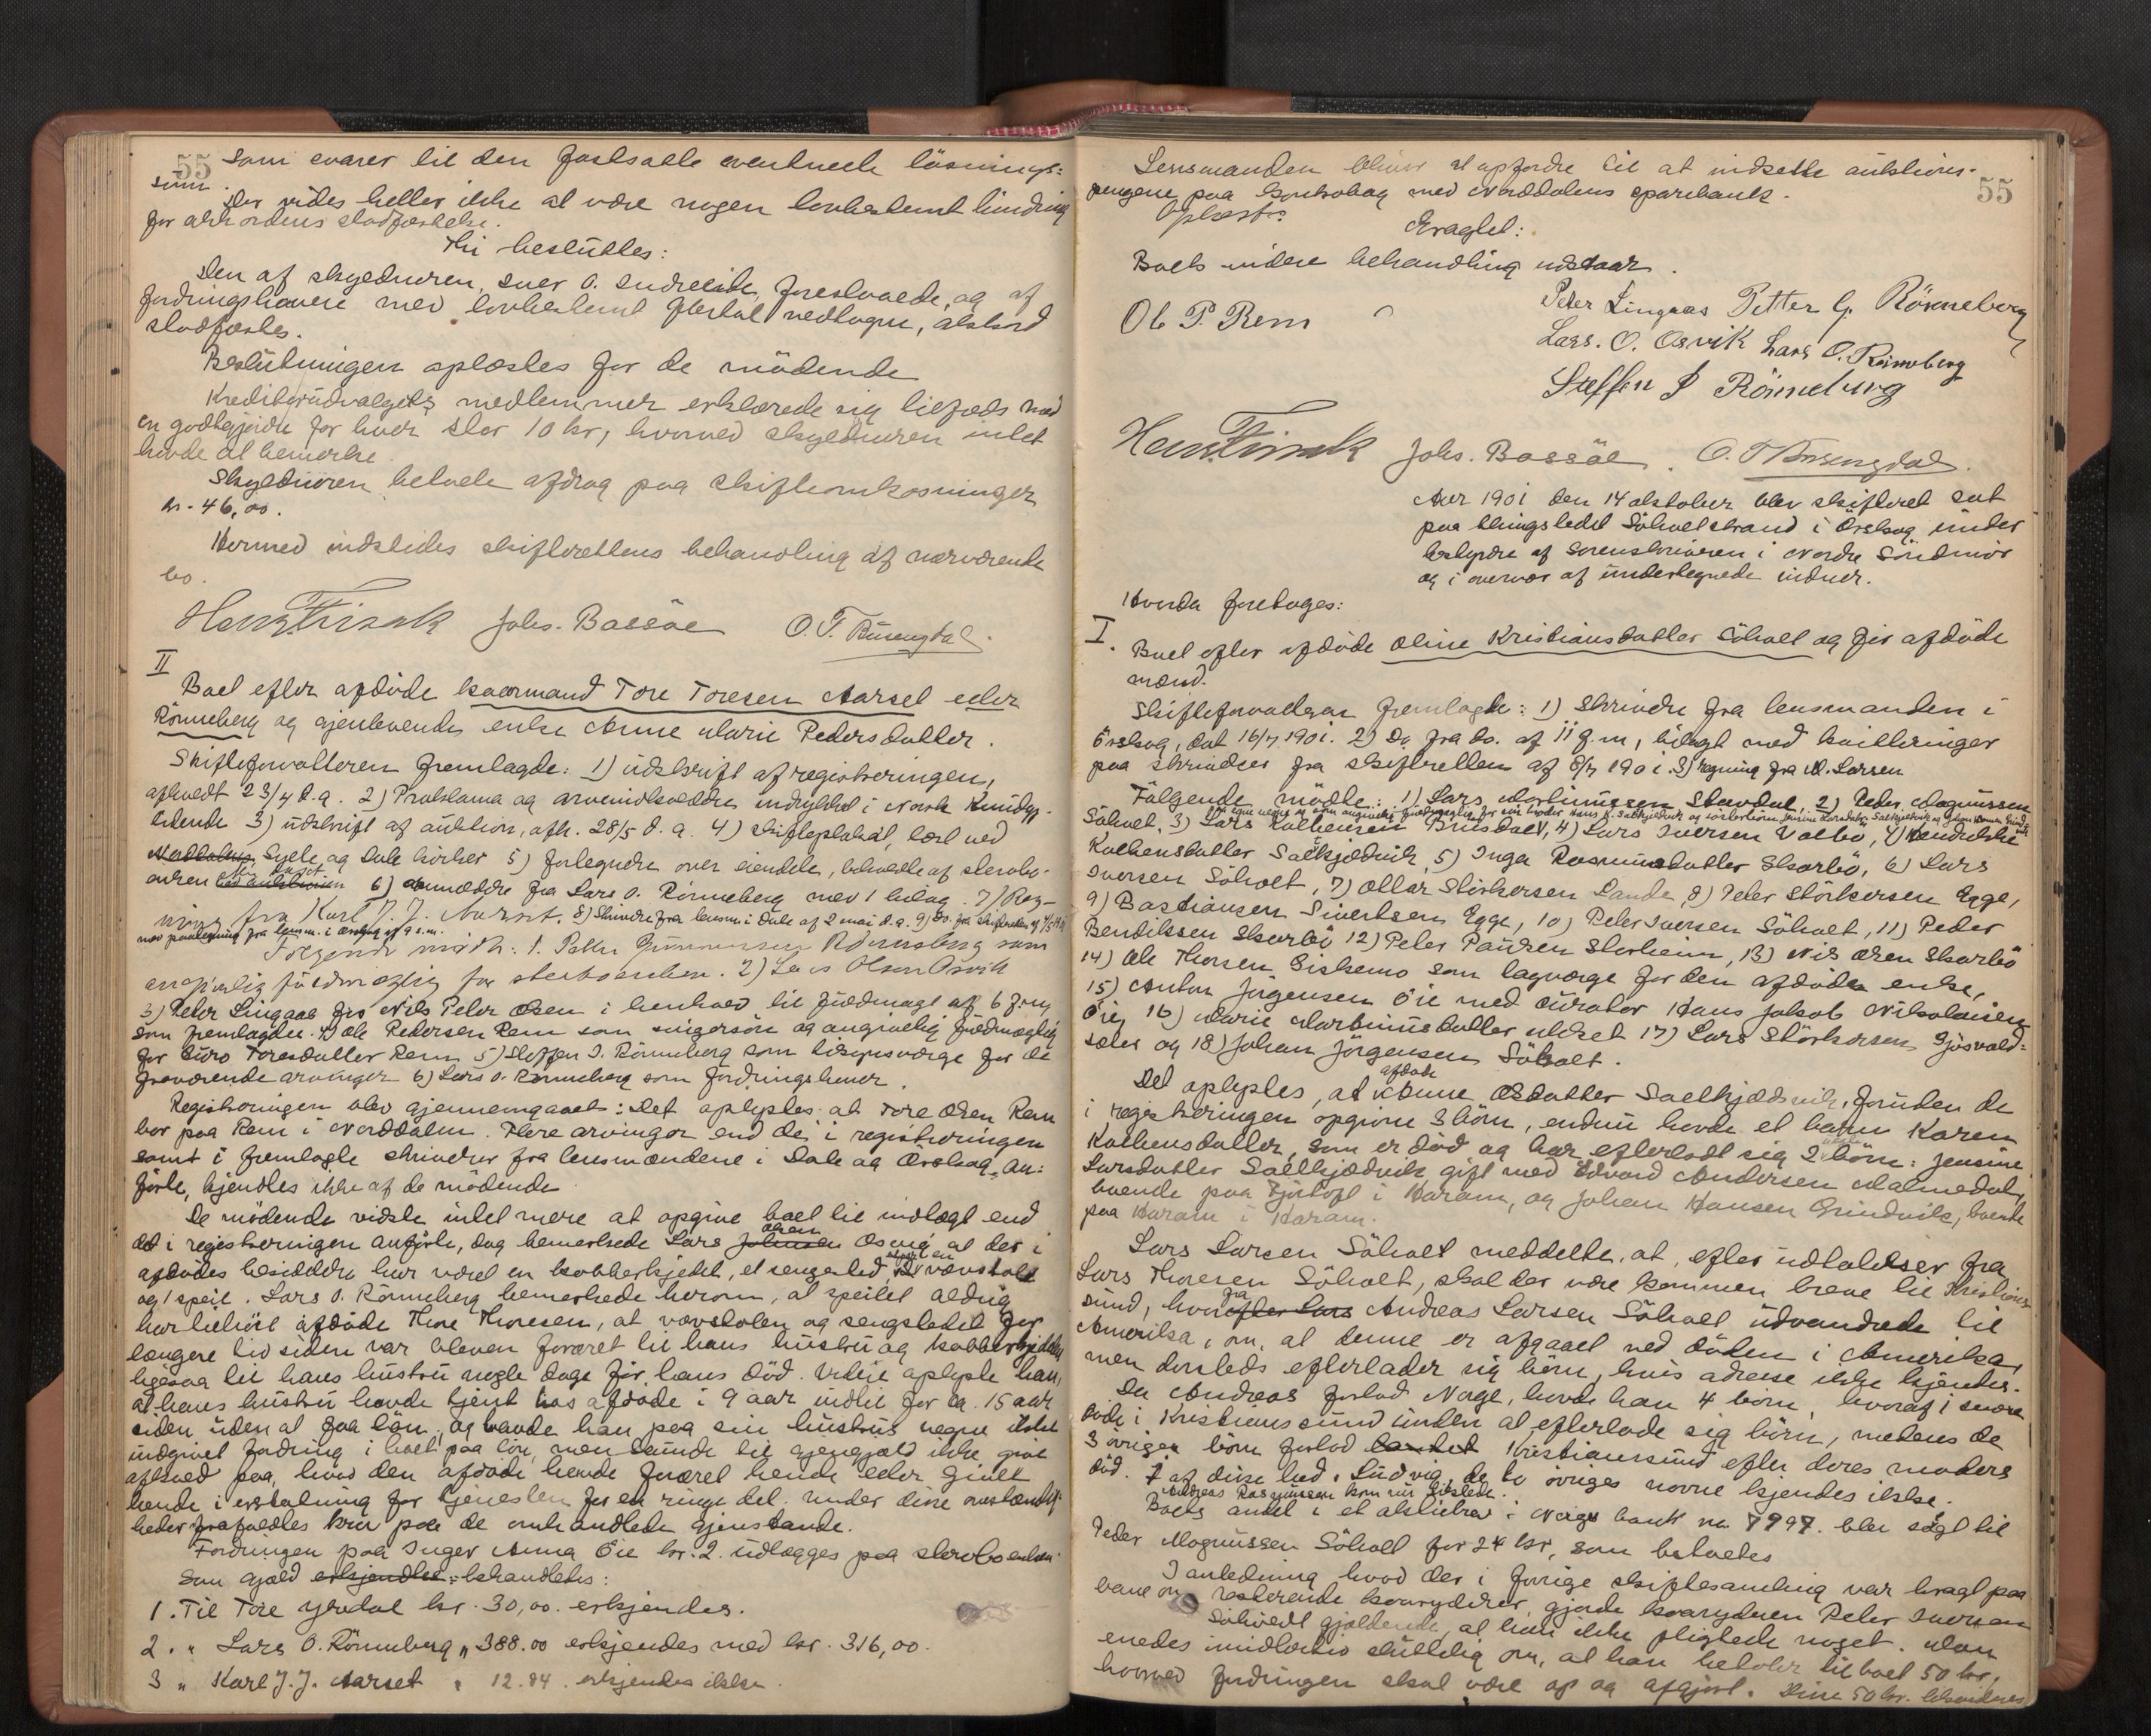 55
som svarer til den fastsatte eventuelle løsnings-
sum.
Der vides heller ikke at være nogen lovbestemt hindring
for akkordens stadfæstelse.
Thi besluttes:
Den af skyldneren, Iver O. Indreeide, foreslaaede, og af
fordringshavere med lovbestemt flertal vedtagne, akkord
stadfæstes.
Beslutningen oplæstes for de mødende
Kreditorudvalgets medlemmer erklærede sig tilfreds med
en godtgjørelse for hver stor 10 kr, hvorved skyldneren intet
havde at bemerke.
Skyldneren betalte afdrag paa skifteomkostninger
kr. 46,00.
Hermed indstilles skifterettens behandling af nærværende
bo.
Johs. Bassøe O. T. Busengdal.
II
Boet efter afdøde kaarmand Tore Toresen Aarset eller
Rønneberg og gjenlevende enke Anne Marie Pedersdatter.
Skifteforvalteren fremlagde: 1) udskrift af registreringen,
afholdt 23/4 d.a. 2) Proklama og arveindkaldelse indrykket i Norsk Kundgj.
tidende 3) udskrift af auktion, afh. 28/5 d.a. 4) skifteplakat, læst ved
Norddalens, Sylte, og Dale kirker 5) fortegnelse over eiendele, beholdte af sterbo-
enken 6) anmeldelse fra Lars O. Rønneberg med 1 bilag. 7) Reg-
ning fra Karl J. J. Aarset. 8) Skrivelse fra lensm. i Dale af 2 mai d.a. 9) Do. fra skifteretten af
med paategning fra lensm. i Ørskog af 9 s.m.
Følgende mødte: 1. Petter Gunnersen Rønneberg som
angivelig fuldmægtig for sterboenken. 2) Lars Olsen Osvik
3) Peder Lingaas for Nils Peter Olsen i henhold til fuldmagt af 6 juni
som fremlagdes. 4) Ole Pedersen Rem som svigersøn og angivelig fuldmægtig
for Guro Toresdatter Rem 5) Steffen I. Rønneberg som tilsynsværge for de
fraværende arvinger 6) Lars O. Rønneberg som fordringshaver.
Registreringen blev gjennemgaaet: Det oplystes at Tore Olsen Rem
bor paa Rem i Norddalen. Flere arvinger end de i registreringen
samt i fremlagte skrivelser fra lensmændene i Dale og Ørskog an-
førte, kjendtes ikke af de mødende
De mødende vidste intet mere at opgive boet til indtægt end
det i registreringen anførte, dog bemerkede Lars Johnsen Olsen Osvig at der i
afdødes besiddelse har været en kobberkjedel, et sengested, en vævstol
og 1 speil. Lars O. Rønneberg bemerkede herom, at speilet aldrig
har tilhørt afdøde Thore Thoresen, at vævstolen og sengstedet for
længere tid siden var bleven foræret til hans hustru og kobberkjedelen
ligesaa til hans hustru nogle dage før hans død. Videre oplyste han,
at hans hustru havde tjent hos afdøde i 9 aar indtil for ca. 15 aar
siden uden at faa løn, og havde han paa sin hustrus vegne ikke
indgivet fordring i boet paa løn, men kunde til gjengjæld ikke give
afkald paa, hvad den afdøde havde foræret hende eller givet
hende i erstatning for tjenesten for en ringe del. Under disse omstændig-
heder frafaldtes krav paa de omhandlede gjenstande.
Fordringen paa Inger Anna Øie kr. 2. udlægges paa sterboenken.
Som gjæld erkjendtes: behandledes:
1. Til Tore Yredal kr. 30,00. erkjendes.
2. " Lars O. Rønneberg " 388.00 erkjendes med kr. 316,00.
3 " Karl J. J. Aarset " 12.84. erkjendes ikke.
55
Lensmanden bliver at opfordre til at indsætte auktions-
pengene paa Kontrabog med Norddalens sparebank.
Oplæst.
Eragtet:
Boets videre behandling udstaar.
Ole P. Rem
Peder Lingaas Petter G. Rønneberg
Lars. O. Osvik Lars O. Rønneberg
Steffen I Rønneberg
Johs. Bassøe. O. T Busengdal.
Aar 1901 den 14 oktober blev skifteret sat
paa thingstedet Søholtstrand i Ørskog under
bestyrelse af sorenskriveren i Nordre Søndmør
og i overvær af undertegnede vidner.
Hvorda foretoges:
I.
Boet efter afdøde Oline Kristiansdatter Søholt og før afdøde
mand.
Skifteforvalteren fremlagde: 1) Skrivelse fra lensmanden i
Ørskog, dat 16/7 1901. 2) Do fra do. af 11 f.m, bilagt med kvitteringer
paa skrivelser fra skifteretten af 8/7 1901. 3) Regning fra M. Larsen
Følgende mødte: 1) Lars Martinussen Stavdal, 2) Peder Magnussen
Søholt, 3) Lars Kolbensen Brusdal, 4) Lars Iversen Valbø, 4)
Kolbensdatter Sælkjædvik, 5) Inga Rasmusdatter Skarbø, 6) Lars
Iversen Søholt, 7) Ottar Størkersen Lande, 8) Peter Størkersen Egge,
9) Bastiansen Sivertsen Egge, 10) Peter Iversen Søholt, 11) Peder
Bendiksen Skarbø 12) Peter Paulsen Storheim, 13) Nils Olsen Skarbø
14) Ole Thorsen Giskemo som lagværge for den afdødes enke,
15) Anton Jørgensen Øie med curator Hans Jakob Nikolaisen
Øie, 16) Marie Martinusdatter Uldset 17) Lars Størkersen Gjøsvold-
sæter og 18) Johan Jørgensen Søholt.
Det oplystes, at afdøde Anne Olsdatter Sælkjædsvik, foruden de
i registreringen opgivne 3 børn, endnu havde et barn Karen
Kolbensdatter, som er død og har efterladt sig 2 børn: Jensine
Larsdatter Sælkjædvik gift med Edvard Andersen Malmedal,
boende paa Fjørtoft i Haram, og Johan Hansen Grindvik, boende
paa Haram i Haram.
Lars Larsen Søholt meddelte, at, efter udtalelser fra
Lars Thoresen Søholt, skal der være kommen breve til Kristians-
sund, hvorfra Andreas Larsen Søholt udvandrede til
Amerika, om, at denne er afgaaet ved døden i Amerika,
men derstedes efterlader sig børn, hvis adresse ikke kjendes.
Da Andreas forlod Norge, havde han 4 børn, hvoraf 1 senere
døde i Kristianssund uden at efterlade sig børn, medens de
3 øvriges børn forlod landet Kristianssund efter deres moders
død. 1 af disse hed: Ludvig, de to øvriges navne kjendes ikke.
Andreas Rasmussen kom nu tilstede.
Boets andel i et aktiebrev i Norges bank no. 7797. blev solgt til
Peder Magnussen Søholt for 24 kr, som betaltes
I anledning hvad der i forrige skiftesamling var bragt paa
bane om resterende kaarydelser, gjorde kaaryderen Peter Iversen
Søholdt gjældende, at han ikke pligtede noget. Man
enedes imidlertid sluttelig om, at han betaler til boet 50 kr,
hvorved fordringen skal være op og afgjort. Disse 50 kr.